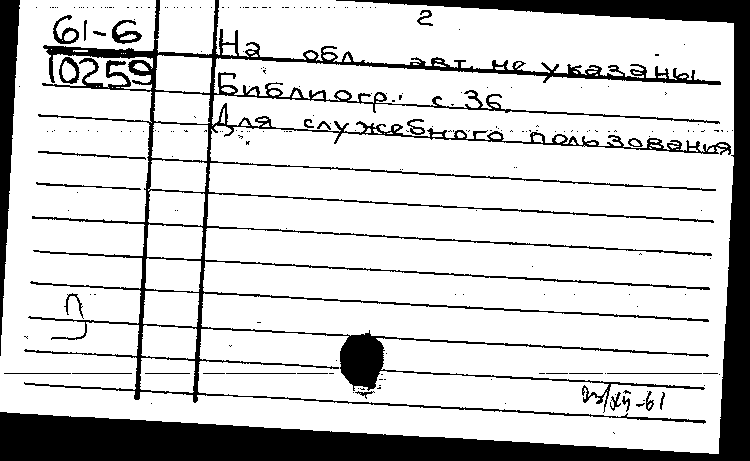 2
61-6
10259
На обл. авт. не указаны
Библиогр.: с. 36.
Для служебного пользования